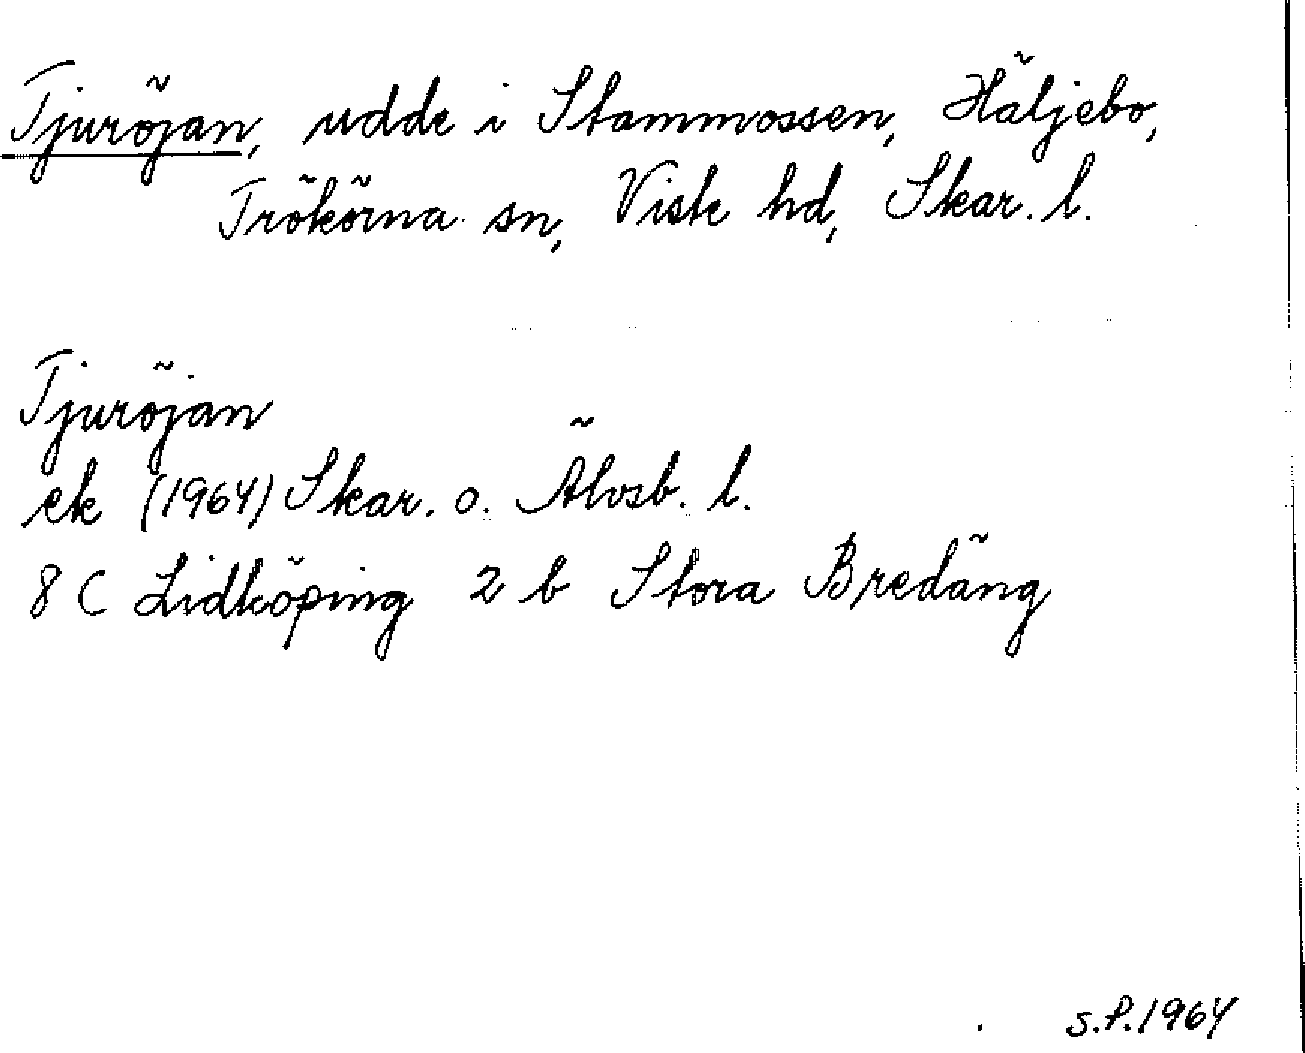 Tjuröjan, udde i Stammossen, Häljebo,
Trökörna sn, Viste hd, Skar. l.
Tjuröjan
ek (1964) Skar. o. Älvsb. l.
8 C Lidköping 2 b Stora Bredäng
S.P. 1964